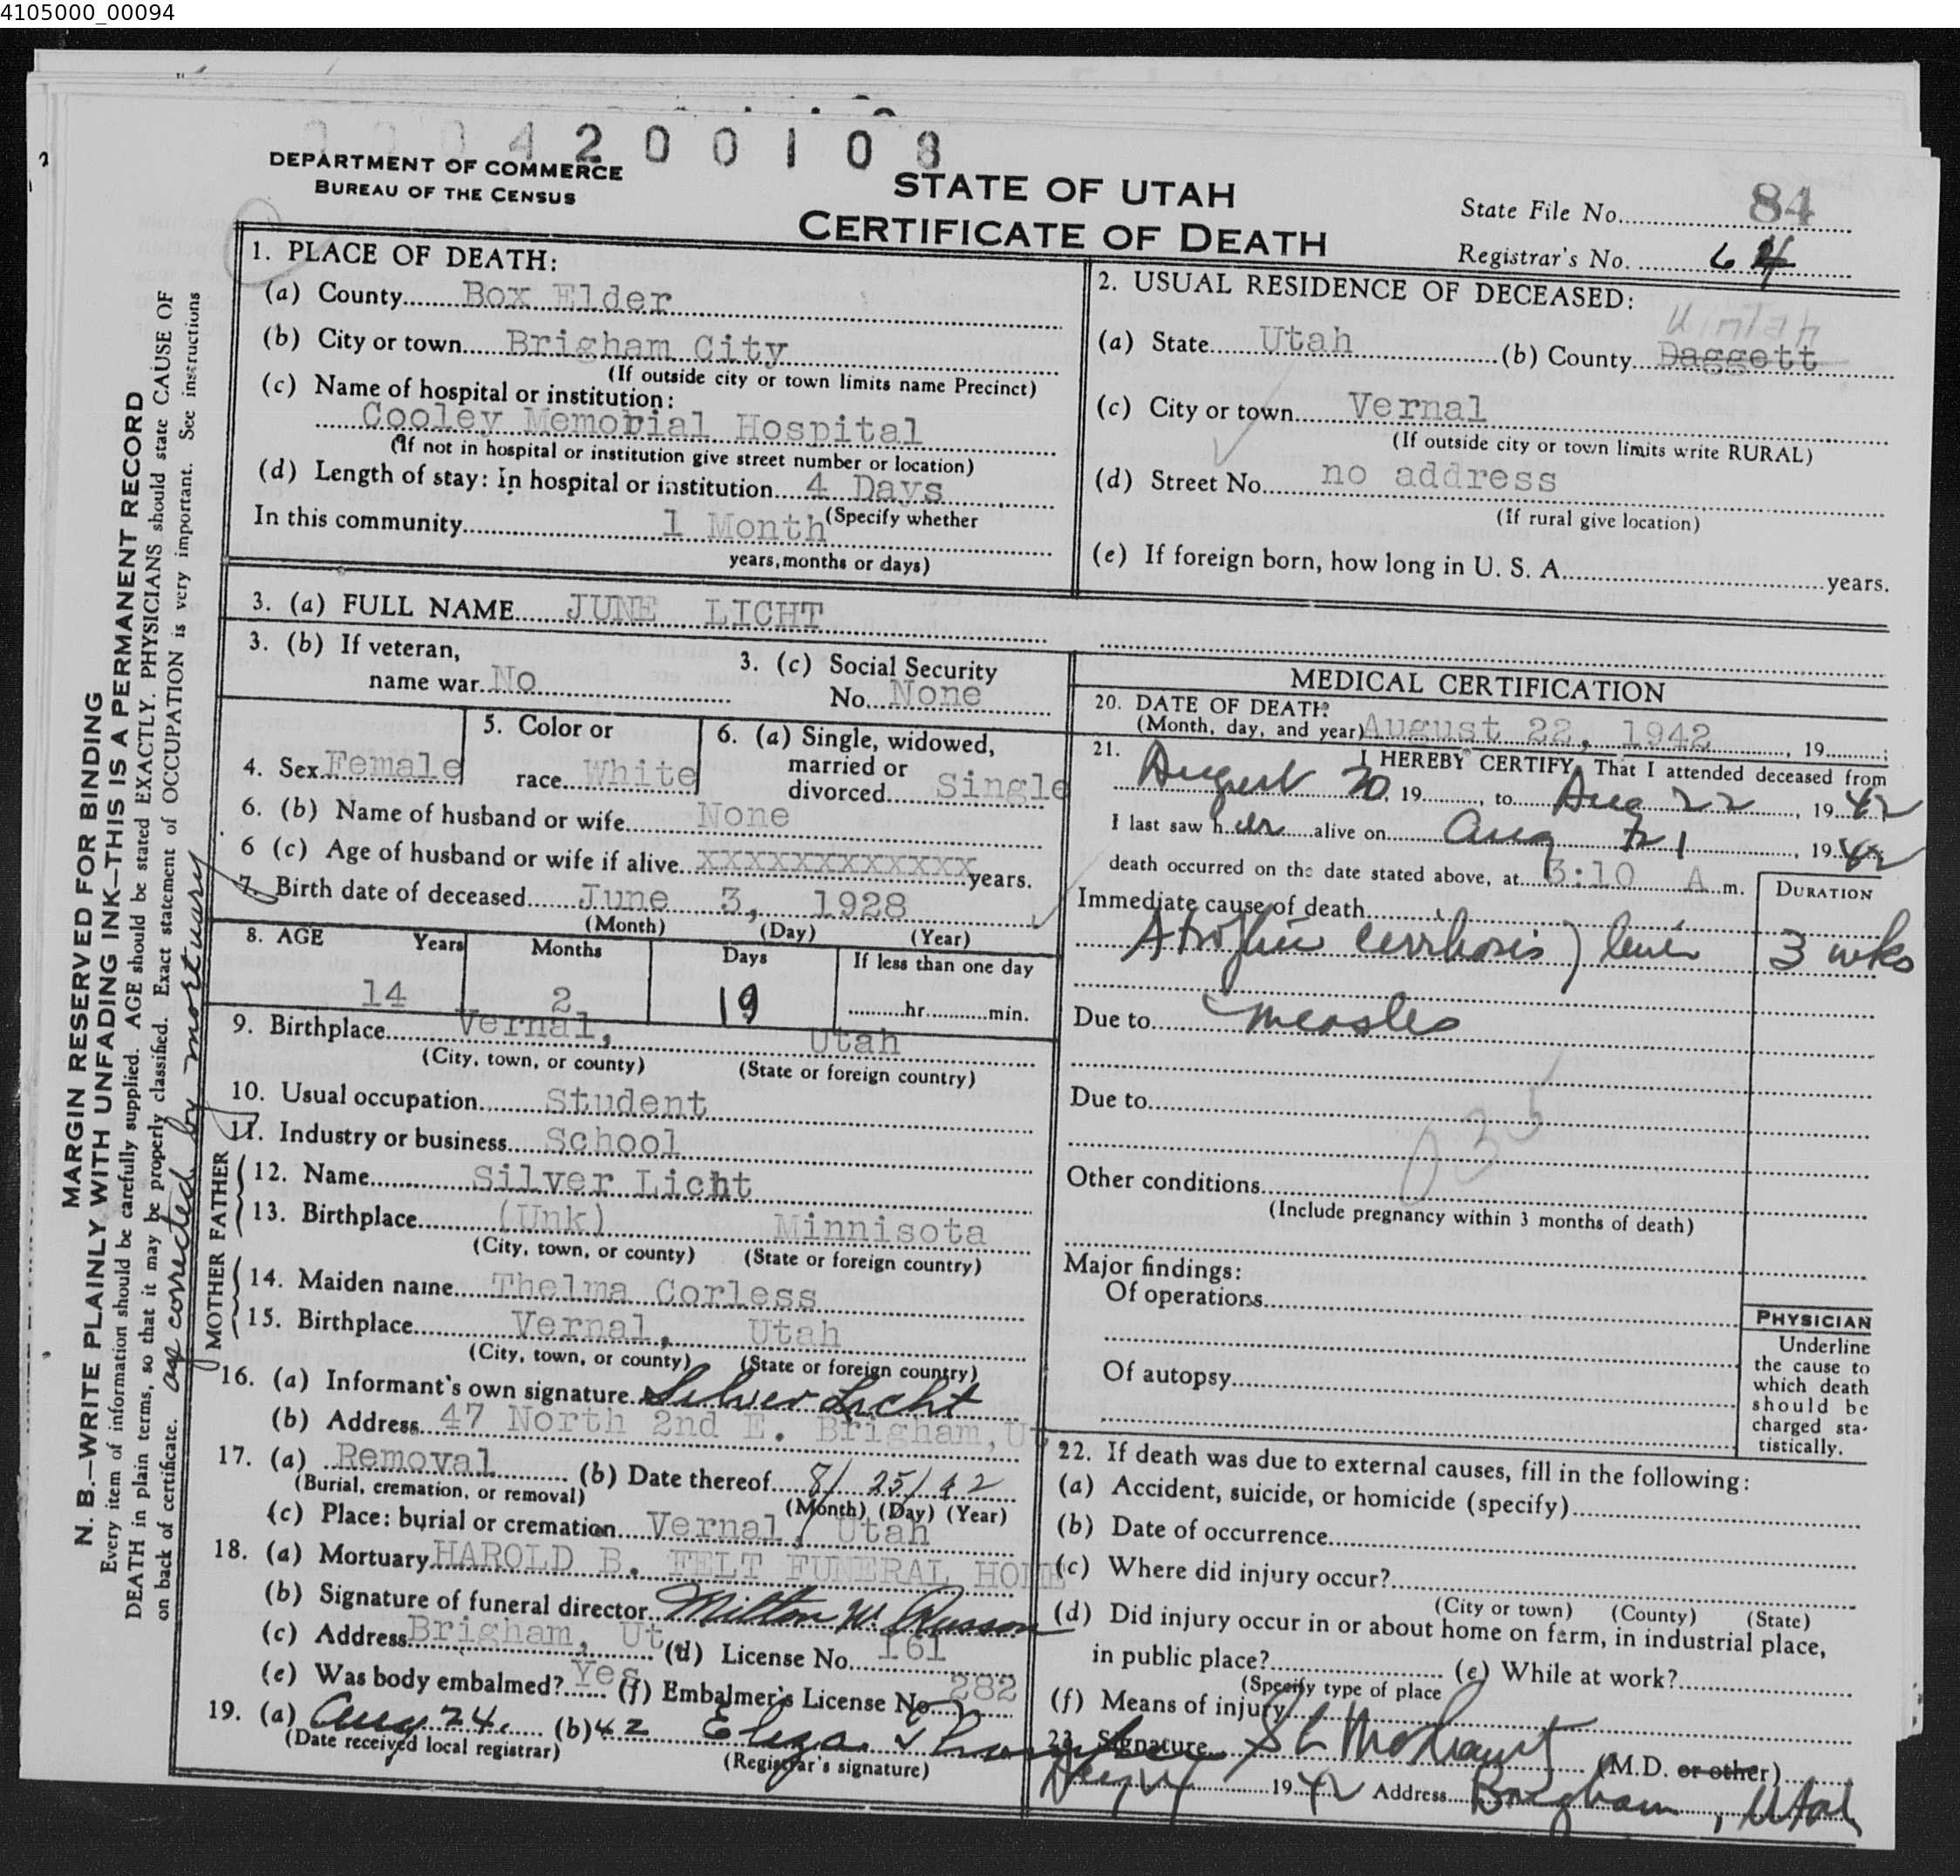 4105000_00094
4200108
DEPARTMENT OF COMMERCE
BUREAU OF THE CENSUS
STATE OF UTAH
CERTIFICATE OF DEATH
State File No. 84
Registrar's No. 64
MARGIN RESERVED FOR BINDING
N. B.—WRITE PLAINLY WITH UNFADING INK—THIS IS A PERMANENT RECORD
Every item of information should be carefully supplied. AGE should be stated EXACTLY. PHYSICIANS should state CAUSE OF
DEATH in plain terms, so that it may be properly classified. Exact statement of OCCUPATION is very important. See instructions
on back of certificate.
as corrected by mortuary
1. PLACE OF DEATH:
(a) County Box Elder
(b) City or town Brigham City
(If outside city or town limits name Precinct)
(c) Name of hospital or institution:
Cooley Memorial Hospital
(If not in hospital or institution give street number or location)
(d) Length of stay: In hospital or institution 4 Days
(Specify whether
In this community 1 Month
years, months or days)
2. USUAL RESIDENCE OF DECEASED:
Uintah
(a) State Utah (b) County Daggett
(c) City or town Vernal
(If outside city or town limits write RURAL)
(d) Street No. no address
(If rural give location)
(e) If foreign born, how long in U. S. A. years.
3. (a) FULL NAME JUNE LICHT
3. (b) If veteran,
name war No
3. (c) Social Security
No. None
4. Sex Female
5. Color or
race White
6. (a) Single, widowed,
married or
divorced Single
6. (b) Name of husband or wife None
6 (c) Age of husband or wife if alive XXXXXXXXXXXX years.
7. Birth date of deceased June 3, 1928
(Month) (Day) (Year)
8. AGE Years Months Days If less than one day
14 2 19 hr. min.
9. Birthplace Vernal, Utah
(City, town, or county) (State or foreign country)
10. Usual occupation Student
11. Industry or business School
FATHER
12. Name Silver Licht
13. Birthplace (Unk) Minnisota
(City, town, or county) (State or foreign country)
MOTHER
14. Maiden name Thelma Corless
15. Birthplace Vernal, Utah
(City, town, or county) (State or foreign country)
16. (a) Informant's own signature Silver Licht
(b) Address 47 North 2nd E. Brigham, Ut
17. (a) Removal (b) Date thereof 8/25/42
(Burial, cremation, or removal) (Month) (Day) (Year)
(c) Place: burial or cremation Vernal, Utah
18. (a) Mortuary HAROLD B. FELT FUNERAL HOME
(b) Signature of funeral director Milton W.
(c) Address Brigham, Ut. (d) License No. 161
(e) Was body embalmed? Yes (f) Embalmer's License No. 282
19. (a) Aug 24, (b) 42 Eliza
(Date received local registrar) (Registrar's signature)
MEDICAL CERTIFICATION
20. DATE OF DEATH:
(Month, day, and year) August 22, 1942, 19 ;
21. I HEREBY CERTIFY, That I attended deceased from
August 20, 19 , to Aug 22, 1942
I last saw her alive on Aug 21, 1942
death occurred on the date stated above, at 3:10 A m.
DURATION
Immediate cause of death
cerrhosis 3 wks
Due to measles
Due to
035
Other conditions
(Include pregnancy within 3 months of death)
Major findings:
Of operations
Of autopsy
PHYSICIAN
Underline
the cause to
which death
should be
charged sta-
tistically.
22. If death was due to external causes, fill in the following:
(a) Accident, suicide, or homicide (specify)
(b) Date of occurrence
(c) Where did injury occur?
(City or town) (County) (State)
(d) Did injury occur in or about home on farm, in industrial place,
in public place? (e) While at work?
(Specify type of place
(f) Means of injury
23. Signature (M.D. or other)
1942 Address Brigham, Utah